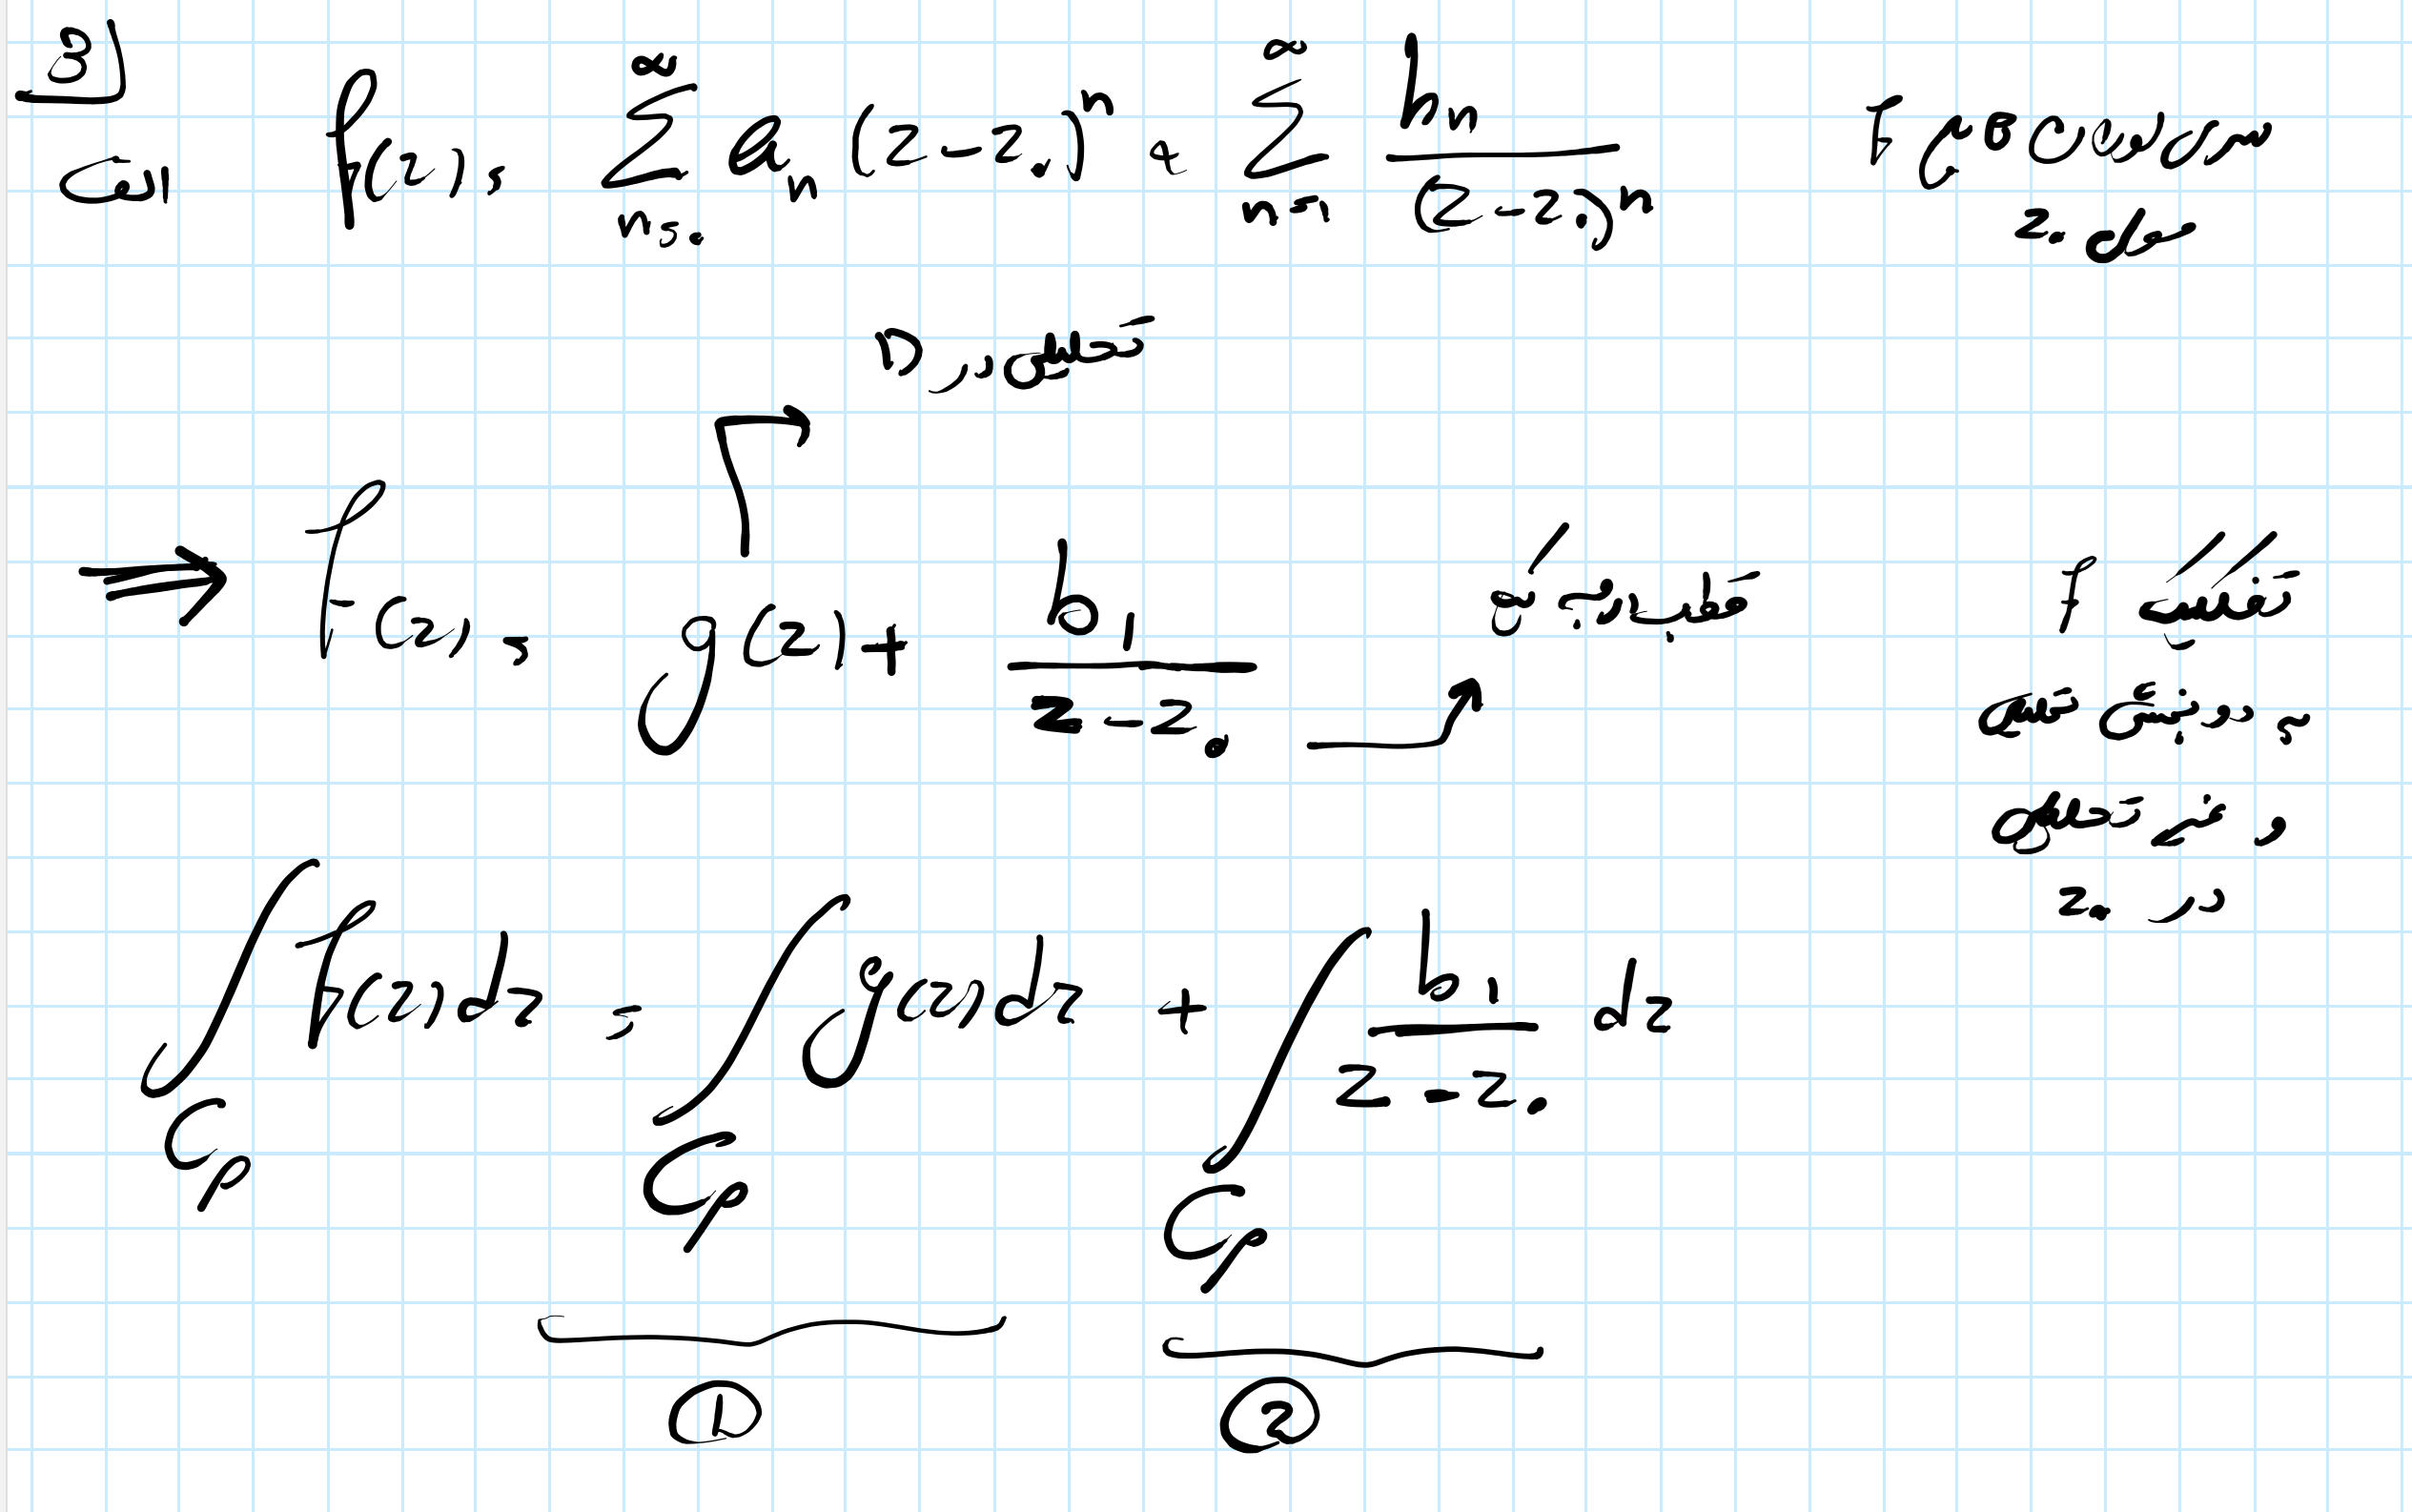 3
الف f(z) = \sum_{n=0}^{∞} a_n (z-z_0)^n + \sum_{n=1}^{∞} \frac{b_n}{(z-z_0)^n} f
حول z_0
تحلیلی در D
⇒ f(z) = g(z) + \frac{b_1}{z-z_0} قطب مرتبه
تفکیک f
به دو بخش
و غیر تحلیلی
در z_0
\int_{C_ρ} f(z) dz = \int_{C_ρ} g(z) dz + \int_{C_ρ} \frac{b_1}{z-z_0} dz
① ②